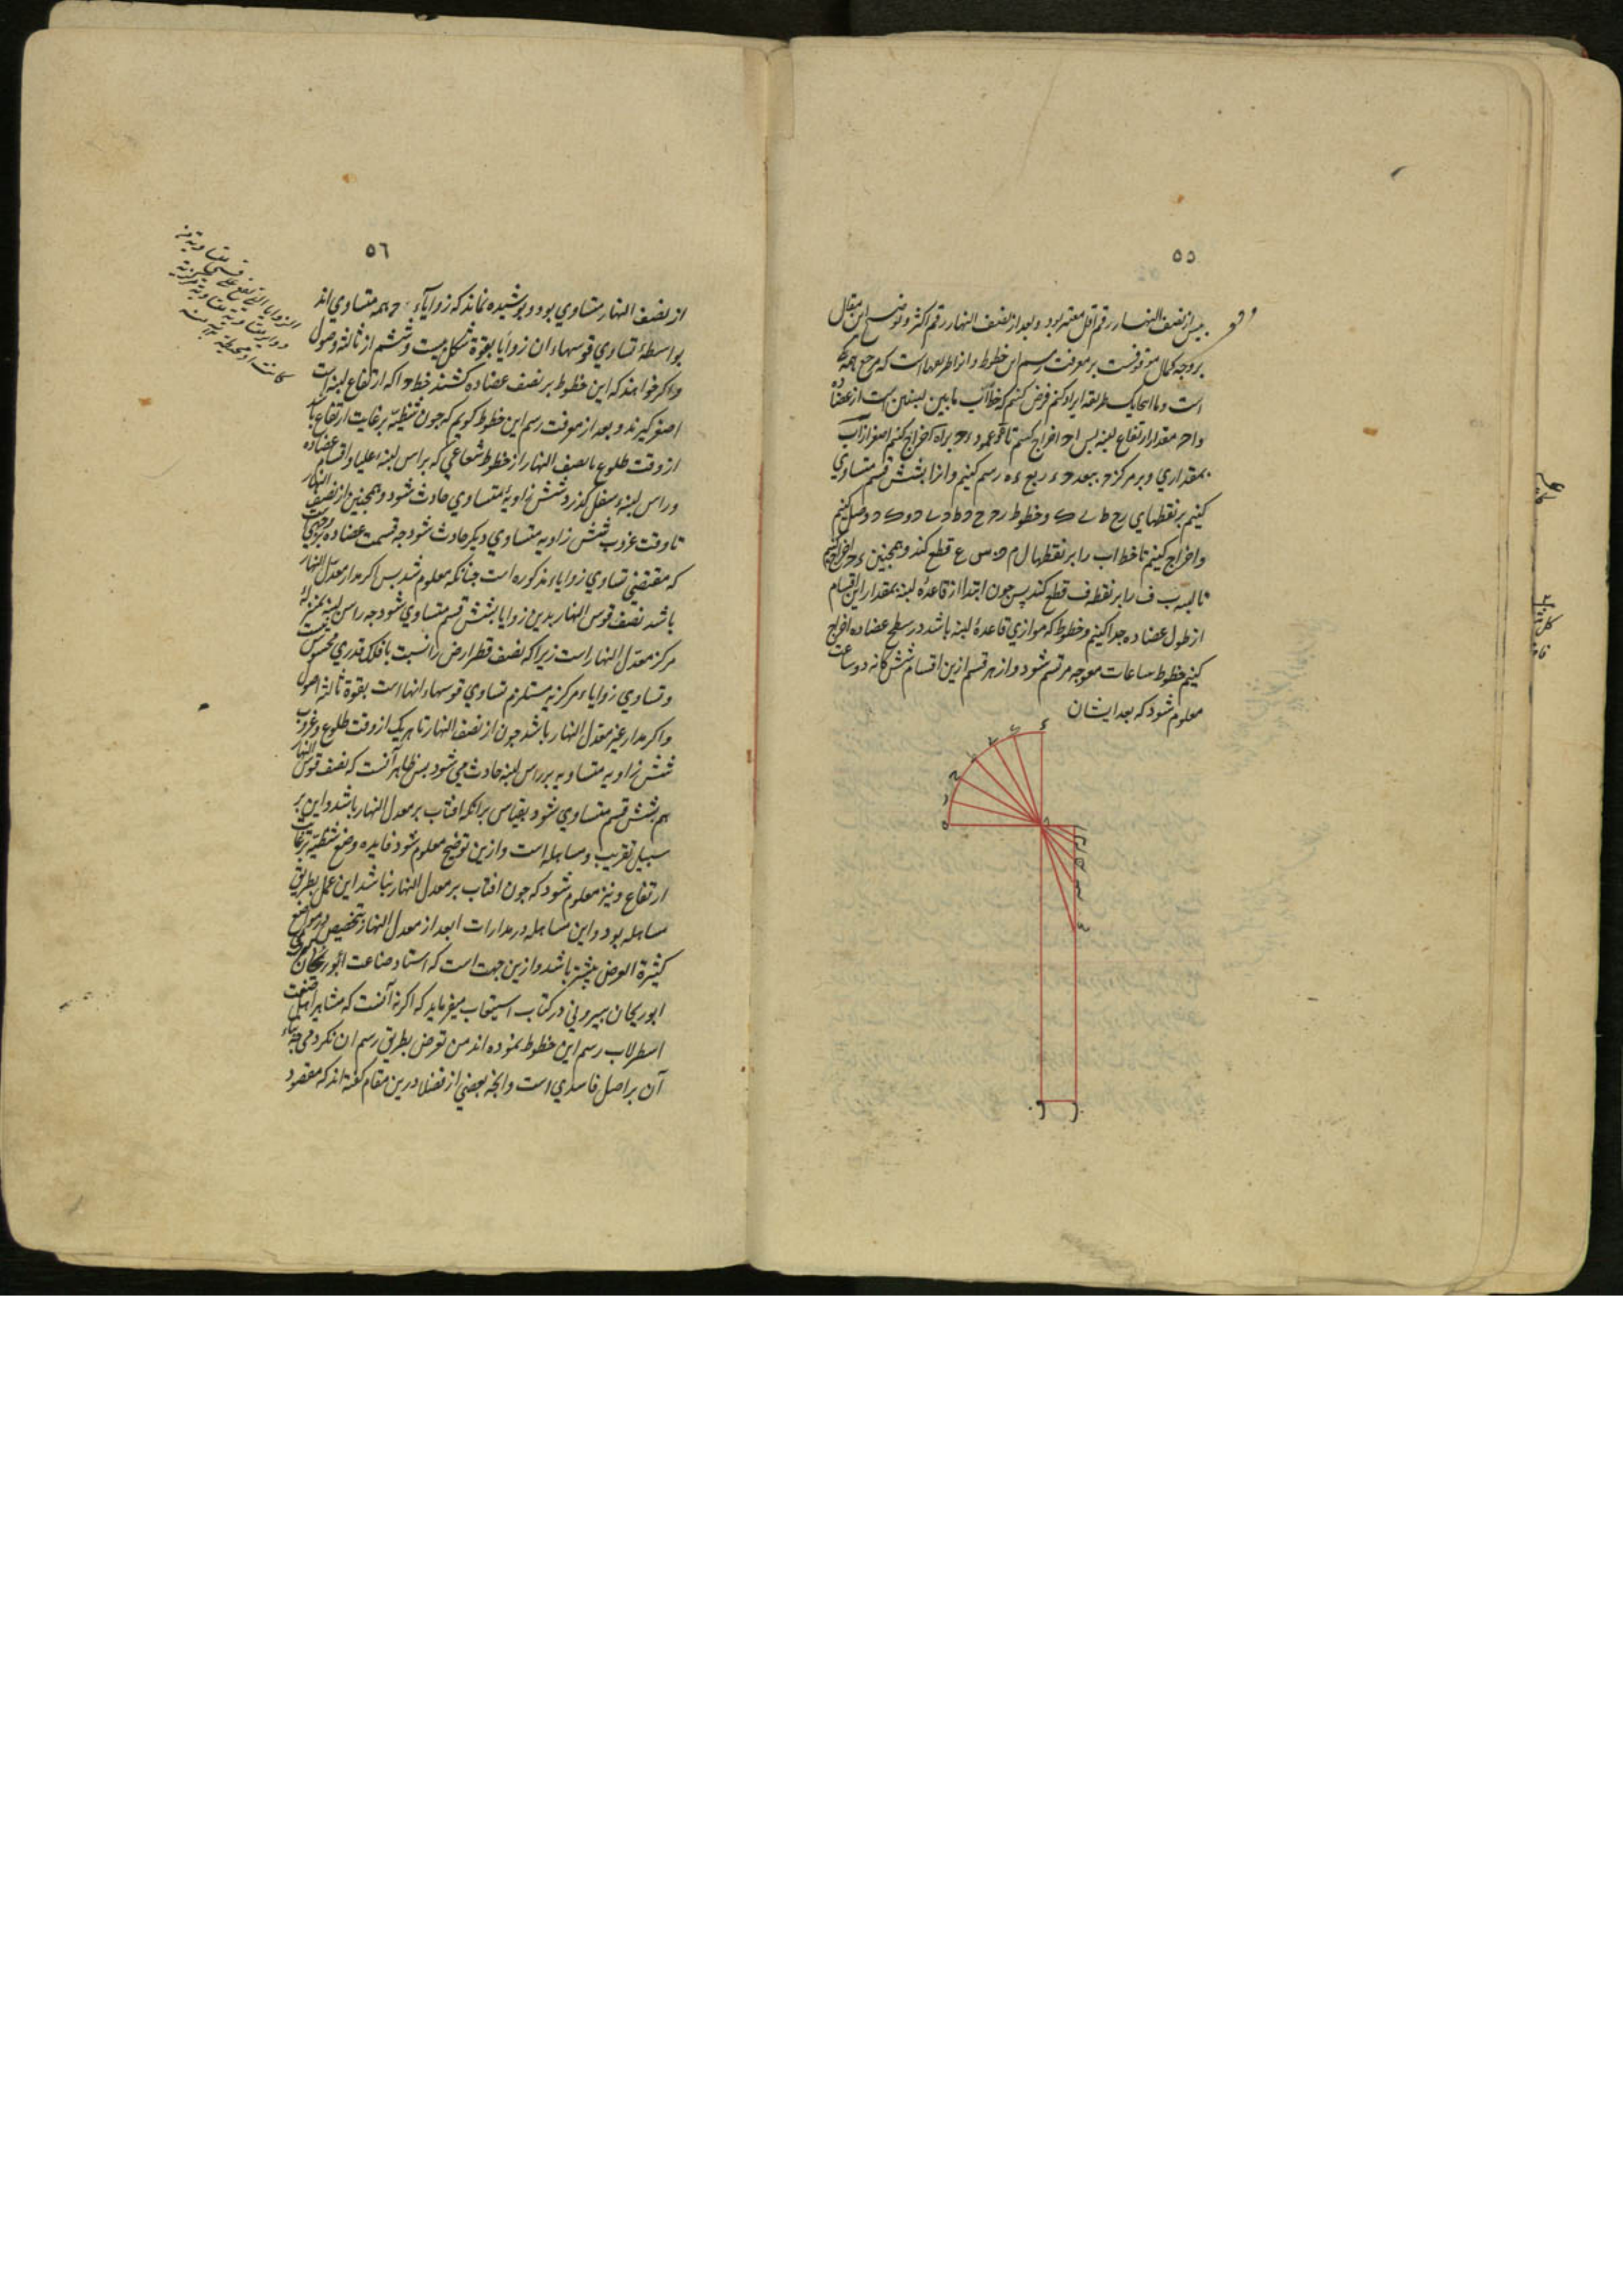 ٥٥
پیش از نصف النهار رقم اقل معتبر بود و بعد از نصف النهار رقم اکثر و توضیح این مقال
بر وجه کمال موقوفست بر معرفت رسم این خطوط و انرا طریقهاست که مرجع همه یکی
است و ما اینجا یک طریقه ایراد کنیم فرض کنیم که خط اب ما بین لبنتین است از عضاده
و اح مقدار ارتفاع لبنه پس اح اخراج کنیم تا ه و عمود ء ح براه اخراج کنیم اصغر از اب
بمقداری و بر مرکز ح ببعد ح ء ربع ء ه رسم کنیم و انرا بشش قسم متساوی
کنیم بر نقطهای ر ح ط ی ک و خطوط ر ح ح ح ط ح ی ح و ک ح وصل کنیم
و اخراج کنیم تا خط اب را بر نقطها ل م ن س ع قطع کند و همچنین ء ح اخراج کنیم
تا لبنه ب ف را بر نقطه ف قطع کند پس چون ابتدا از قاعدۀ لبنه بمقدار این اقسام
از طول عضاده جدا کنیم و خطوط که موازی قاعدۀ لبنه باشد در سطح عضاده اخراج
کنیم خطوط ساعات معوجه مرتسم شود و از هر قسم ازین اقسام شش کانه دو ساعت
معلوم شود که بعد ایشان
٥٦
از نصف النهار متساوی بود و پوشیده نماند که زوایاء ح همه متساوی اند
بواسطۀ تساوی قوسهاء ان زوایا بقوة شکل بیست و ششم از ثالثه اصول
و اکر خواهند که این خطوط بر نصف عضاده کشند خط ح ا که ارتفاع لبنه است
اصغر کیرند و بعد از معرفت رسم این خطوط کویم که چون شظیه بر غایت ارتفاع باشد
از وقت طلوع تا نصف النهار از خطوط شعاعی که براس لبنه علیا و اقسام عضاده
و راس لبنه سفلی کذرد شش زاویۀ متساوی حادث شود و همچنین از نصف النهار
تا وقت غروب شش زاویه متساوی دیکر حادث شود چه قسمت عضاده بر وجهی است
که مقتضی تساوی زوایاء مذکوره است چنانکه معلوم شد پس اکر مدار معدل النهار
باشد نصف قوس النهار بدین زوایا بشش قسم متساوی شود چه راس لبنه بمنزلۀ
مرکز معدل النهار است زیرا که نصف قطر ارض را نسبت با فلک قدری محسوس نیست
و تساوی زوایاء مرکزیه مستلزم تساوی قوسهاء انها است بقوة ثالثه اصول
و اکر مدار غیر معدل النهار باشد چون از نصف النهار تا هر یک از وقت طلوع و غروب
شش زاویه متساویه بر راس لبنه حادث می شود پس ظاهر آنست که نصف قوس النهار
هم بشش قسم متساوی شود بقیاس برانکه افتاب بر معدل النهار باشد و این بر
سبیل تقریب و مساهله است و ازین توضیح معلوم شود فایده وضع شظیه بر غایت
ارتفاع و نیز معلوم شود که چون افتاب بر معدل النهار نباشد این عمل بطریق
مساهله بود و این مساهله در مدارات ابعد از معدل النهار بتخصیص در مواضع
کثیرة العرض بیشتر باشد و ازین جهت است که استاد صناعت
ابوریحان بیرونی در کتاب استیعاب میفرماید که اکر نه آنست که مشاهیر اهل صنعت
اسطرلاب رسم این خطوط نموده اند من تعرض بطریق رسم ان نکردمی چه بناء
آن بر اصل فاسدی است و انچه بعضی از فضلا درین مقام کفته اند که مقصود